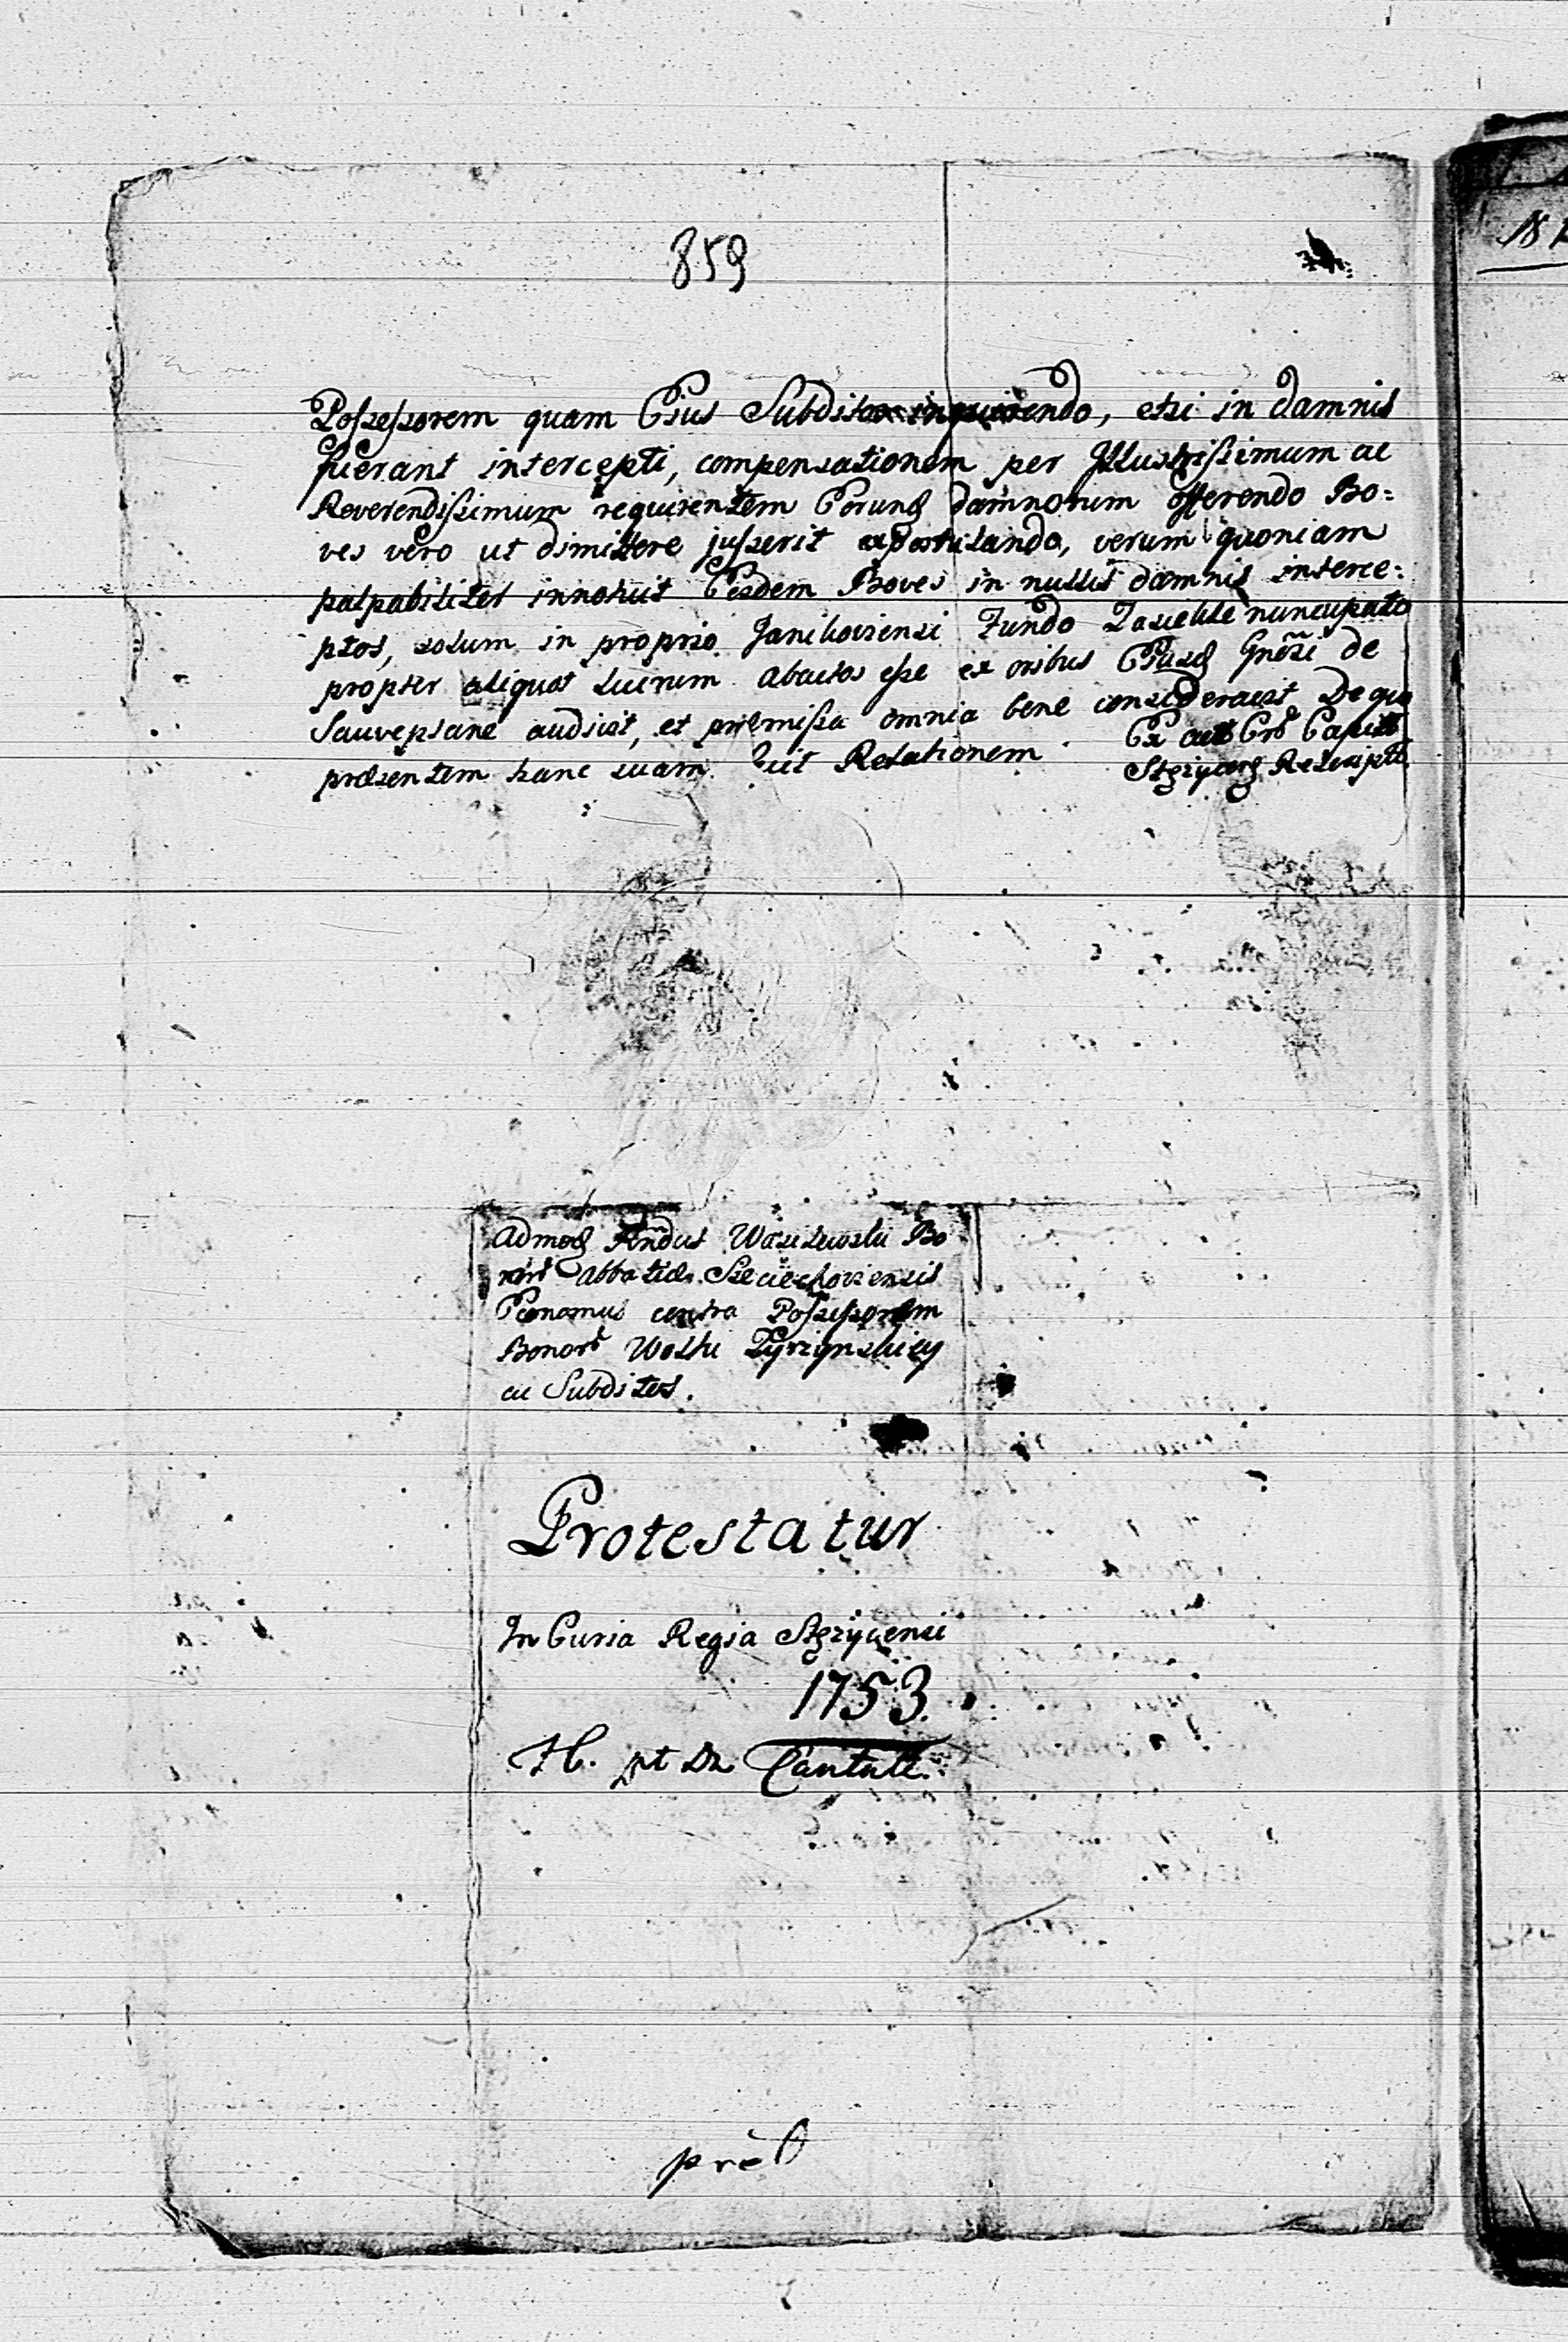 859
Possessorem quam Ejus Subditos inquirendo, etsi in damnis
fuerant intercepti, compensationem per Illustrissimum ac
Reverendissimum requirentem Eorund damnorum offerendo Bo:
ves vero ut dimittere jusserit expostulando, verum quoniam
palpabiliter innotuit Eosdem Boves in nullis damnis interce:
ptos, solum in proprio Janikoviensi Fundo nuncupato
propter aliquot lucrum abactos esse ex oribus Gnõsi de
Sauveplane audivit, et præmissa omnia bene consideravit De quo
præsentem hanc suam Relationem
Ex act Cap
Stężycens Rescript
Admod Rñdus Wasilewski Bo
nor Abbatiæ Sieciechoviensis
Œconomus contra Possessorem
Bonor Wolki Tyrzynskiey
cu Subditos.
Protestatur
In Curia Regia Stężycensi
1753.
H. pt